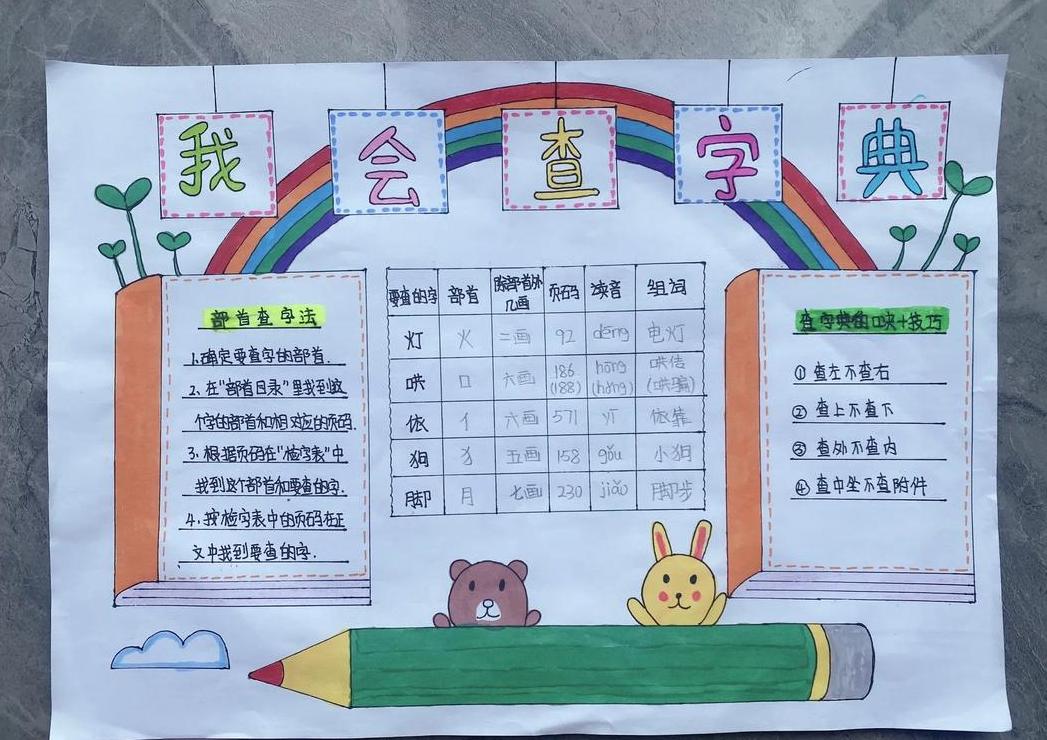 我会查字典
部首查字法
1.确定要查字的部首.
2.在"部首目录"里找到这
个字的部首和相对应的页码.
3.根据页码在"检字表"中
找到这个部首和要查的字.
4.按检字表中的页码在正
文中找到要查的字.
要查的字 部首 除部首外几画 页码 读音 组词
灯 火 二画 92 dēng 电灯
哄 口 六画 186 (188) hōng (hǒng) 哄传 (哄骗)
依 亻 六画 571 yī 依靠
狗 犭 五画 158 gǒu 小狗
脚 月 七画 230 jiǎo 脚步
查字典的口诀+技巧
①查左不查右
②查上不查下
③查外不查内
④查中坐不查附件